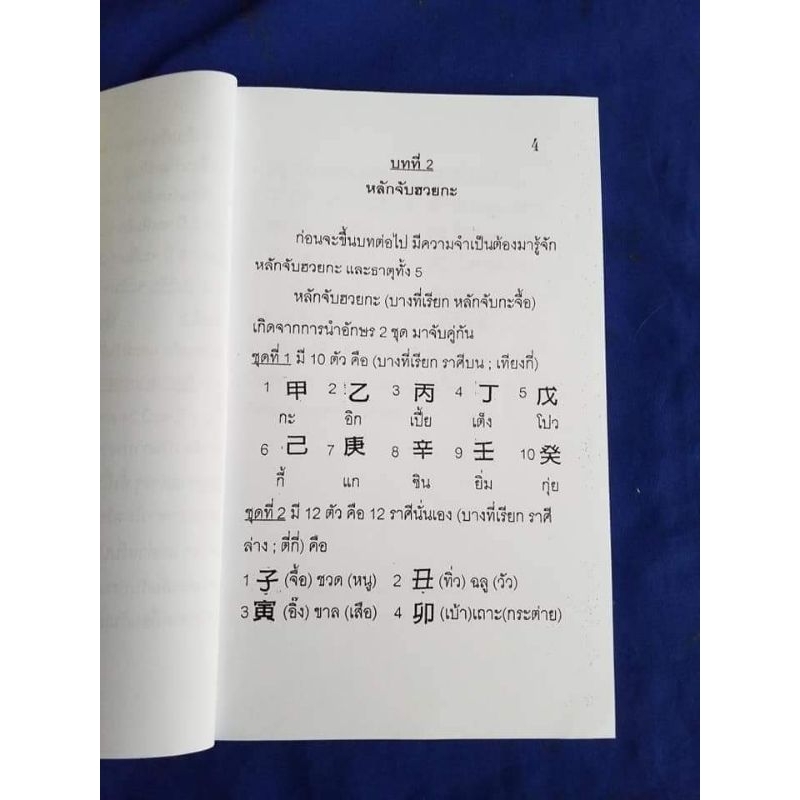 4
บทที่ 2
หลักจับฮวยกะ
ก่อนจะขึ้นบทต่อไป มีความจำเป็นต้องมารู้จัก
หลักจับฮวยกะ และธาตุทั้ง 5
หลักจับฮวยกะ (บางที่เรียก หลักจับกะจื้อ)
เกิดจากการนำอักษร 2 ชุด มาจับคู่กัน
ชุดที่ 1 มี 10 ตัว คือ (บางที่เรียก ราศีบน ; เทียงกี่)
1 甲 2 乙 3 丙 4 丁 5 戊
กะ อิก เปี้ย เต็ง โปว
6 己 7 庚 8 辛 9 壬 10 癸
กี้ แก ซิน ยิ่ม กุ่ย
ชุดที่ 2 มี 12 ตัว คือ 12 ราศีนั่นเอง (บางที่เรียก ราศี
ล่าง ; ตี่กี่) คือ
1 子 (จื้อ) ชวด (หนู) 2 丑 (ทิ่ว) ฉลู (วัว)
3 寅 (อิ๊ง) ขาล (เสือ) 4 卯 (เบ้า)เถาะ(กระต่าย)